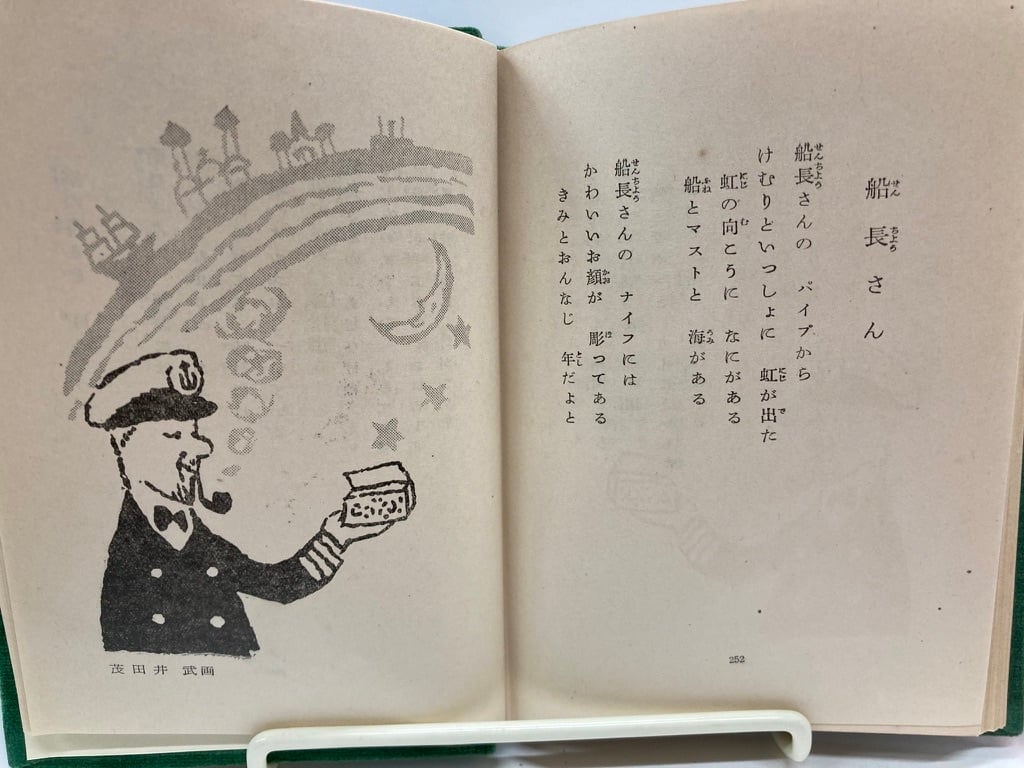 船長さん
船長さんの パイプから
けむりといつしょに 虹が出た
虹の向こうに なにがある
船とマストと 海がある
船長さんの ナイフには
かわいいお顔が 彫つてある
きみとおんなじ 年だよと
252
茂田井 武画